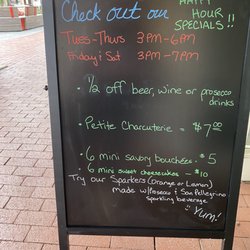 HAPPY
Check out our HOUR
SPECIALS!!
Tues-Thurs 3PM-6PM
Friday & Sat 3PM-7PM
• 1/2 off beer, wine or prosecco
drinks
• Petite Charcuterie = $7.00
• 6 mini savory bouchees - $5
6 mini sweet cheesecakes - $10
Try our Sparkers (Orange or Lemon)
made w/Prosecco & San Pellegrino
sparkling beverage
Yum!